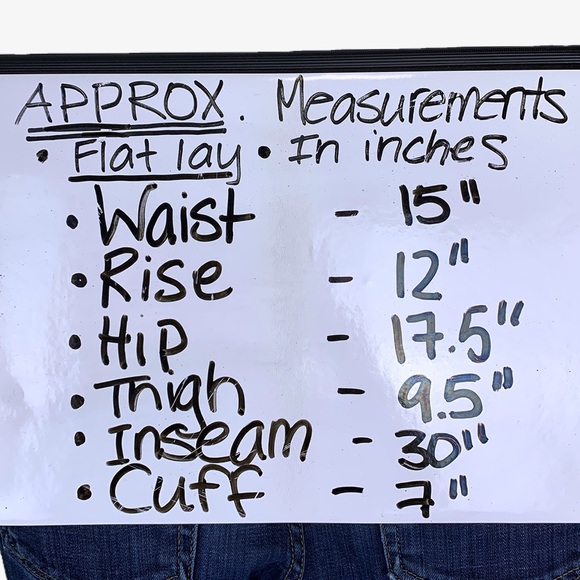 APPROX. Measurements
• Flat lay • In inches
• Waist - 15"
• Rise - 12"
• Hip - 17.5"
• Thigh - 9.5"
• Inseam - 30"
• Cuff - 7"